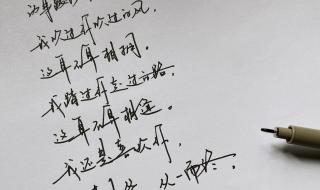 我吹过你吹过的风,
这算不算相拥,
我踏过你走过的路,
这算不算相逢。
我还是喜欢你,
从一而终。